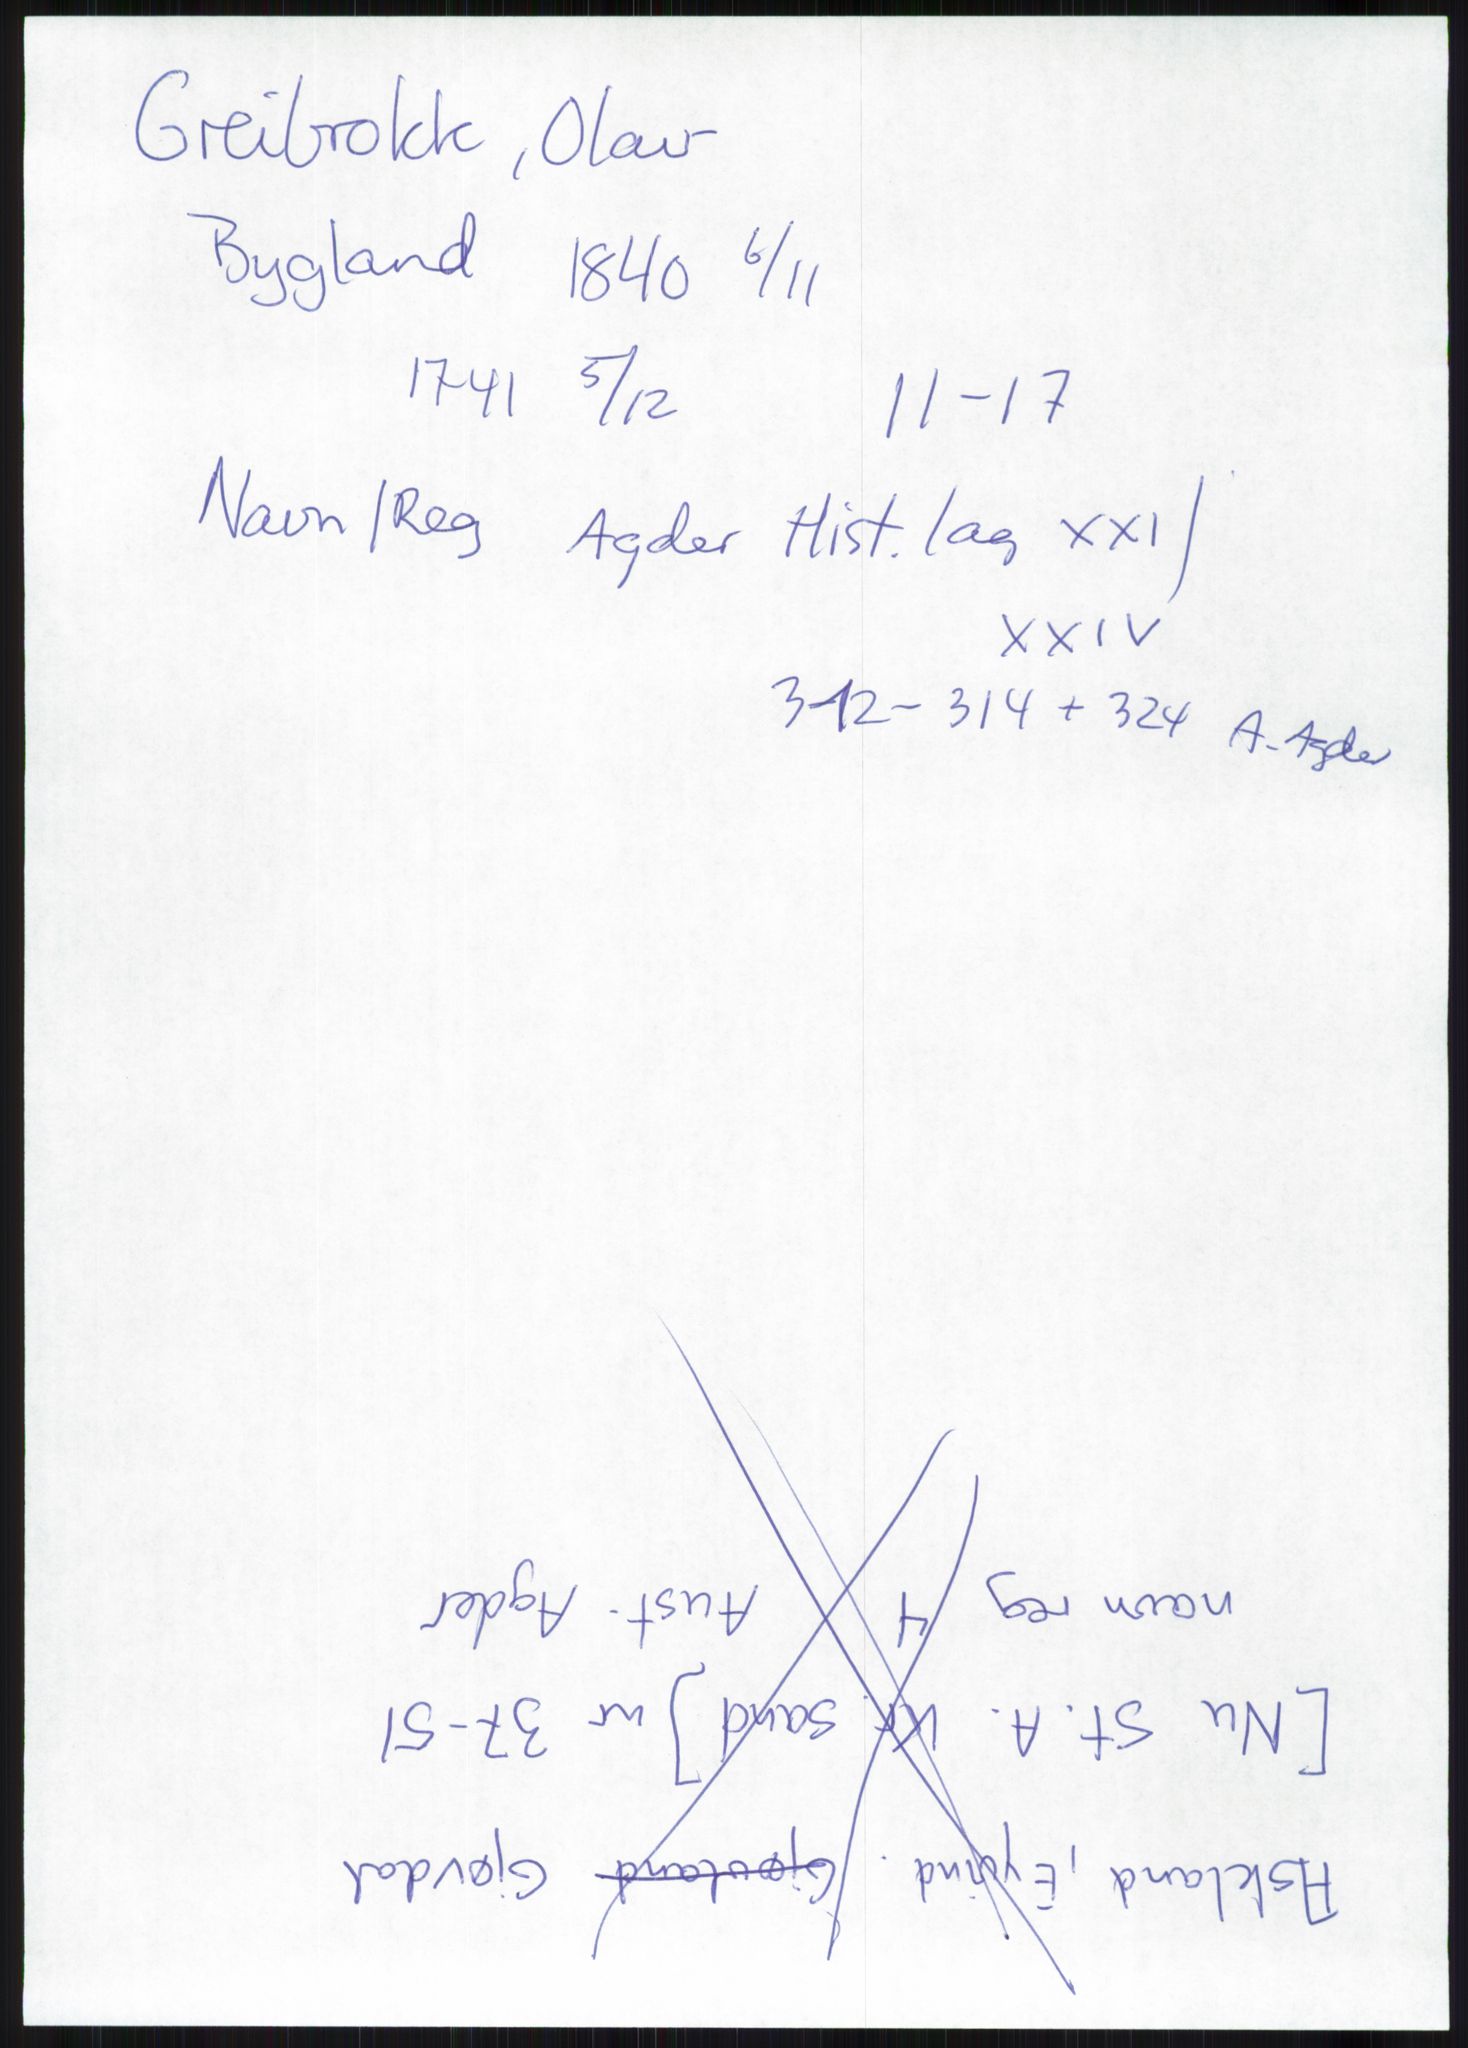 Greibrokk, Olav
Bygland 1840 6/11
1741 5/12 11-17
Navn/Reg Agder Hist. lag XXI/
XXIV
312- 314 + 324 A-Agder
Askland, Eyvind. Gjøvland Gjøvdal
[Nu St. A. Kr. sand] nr 37-51
navn reg 4 Aust-Agder